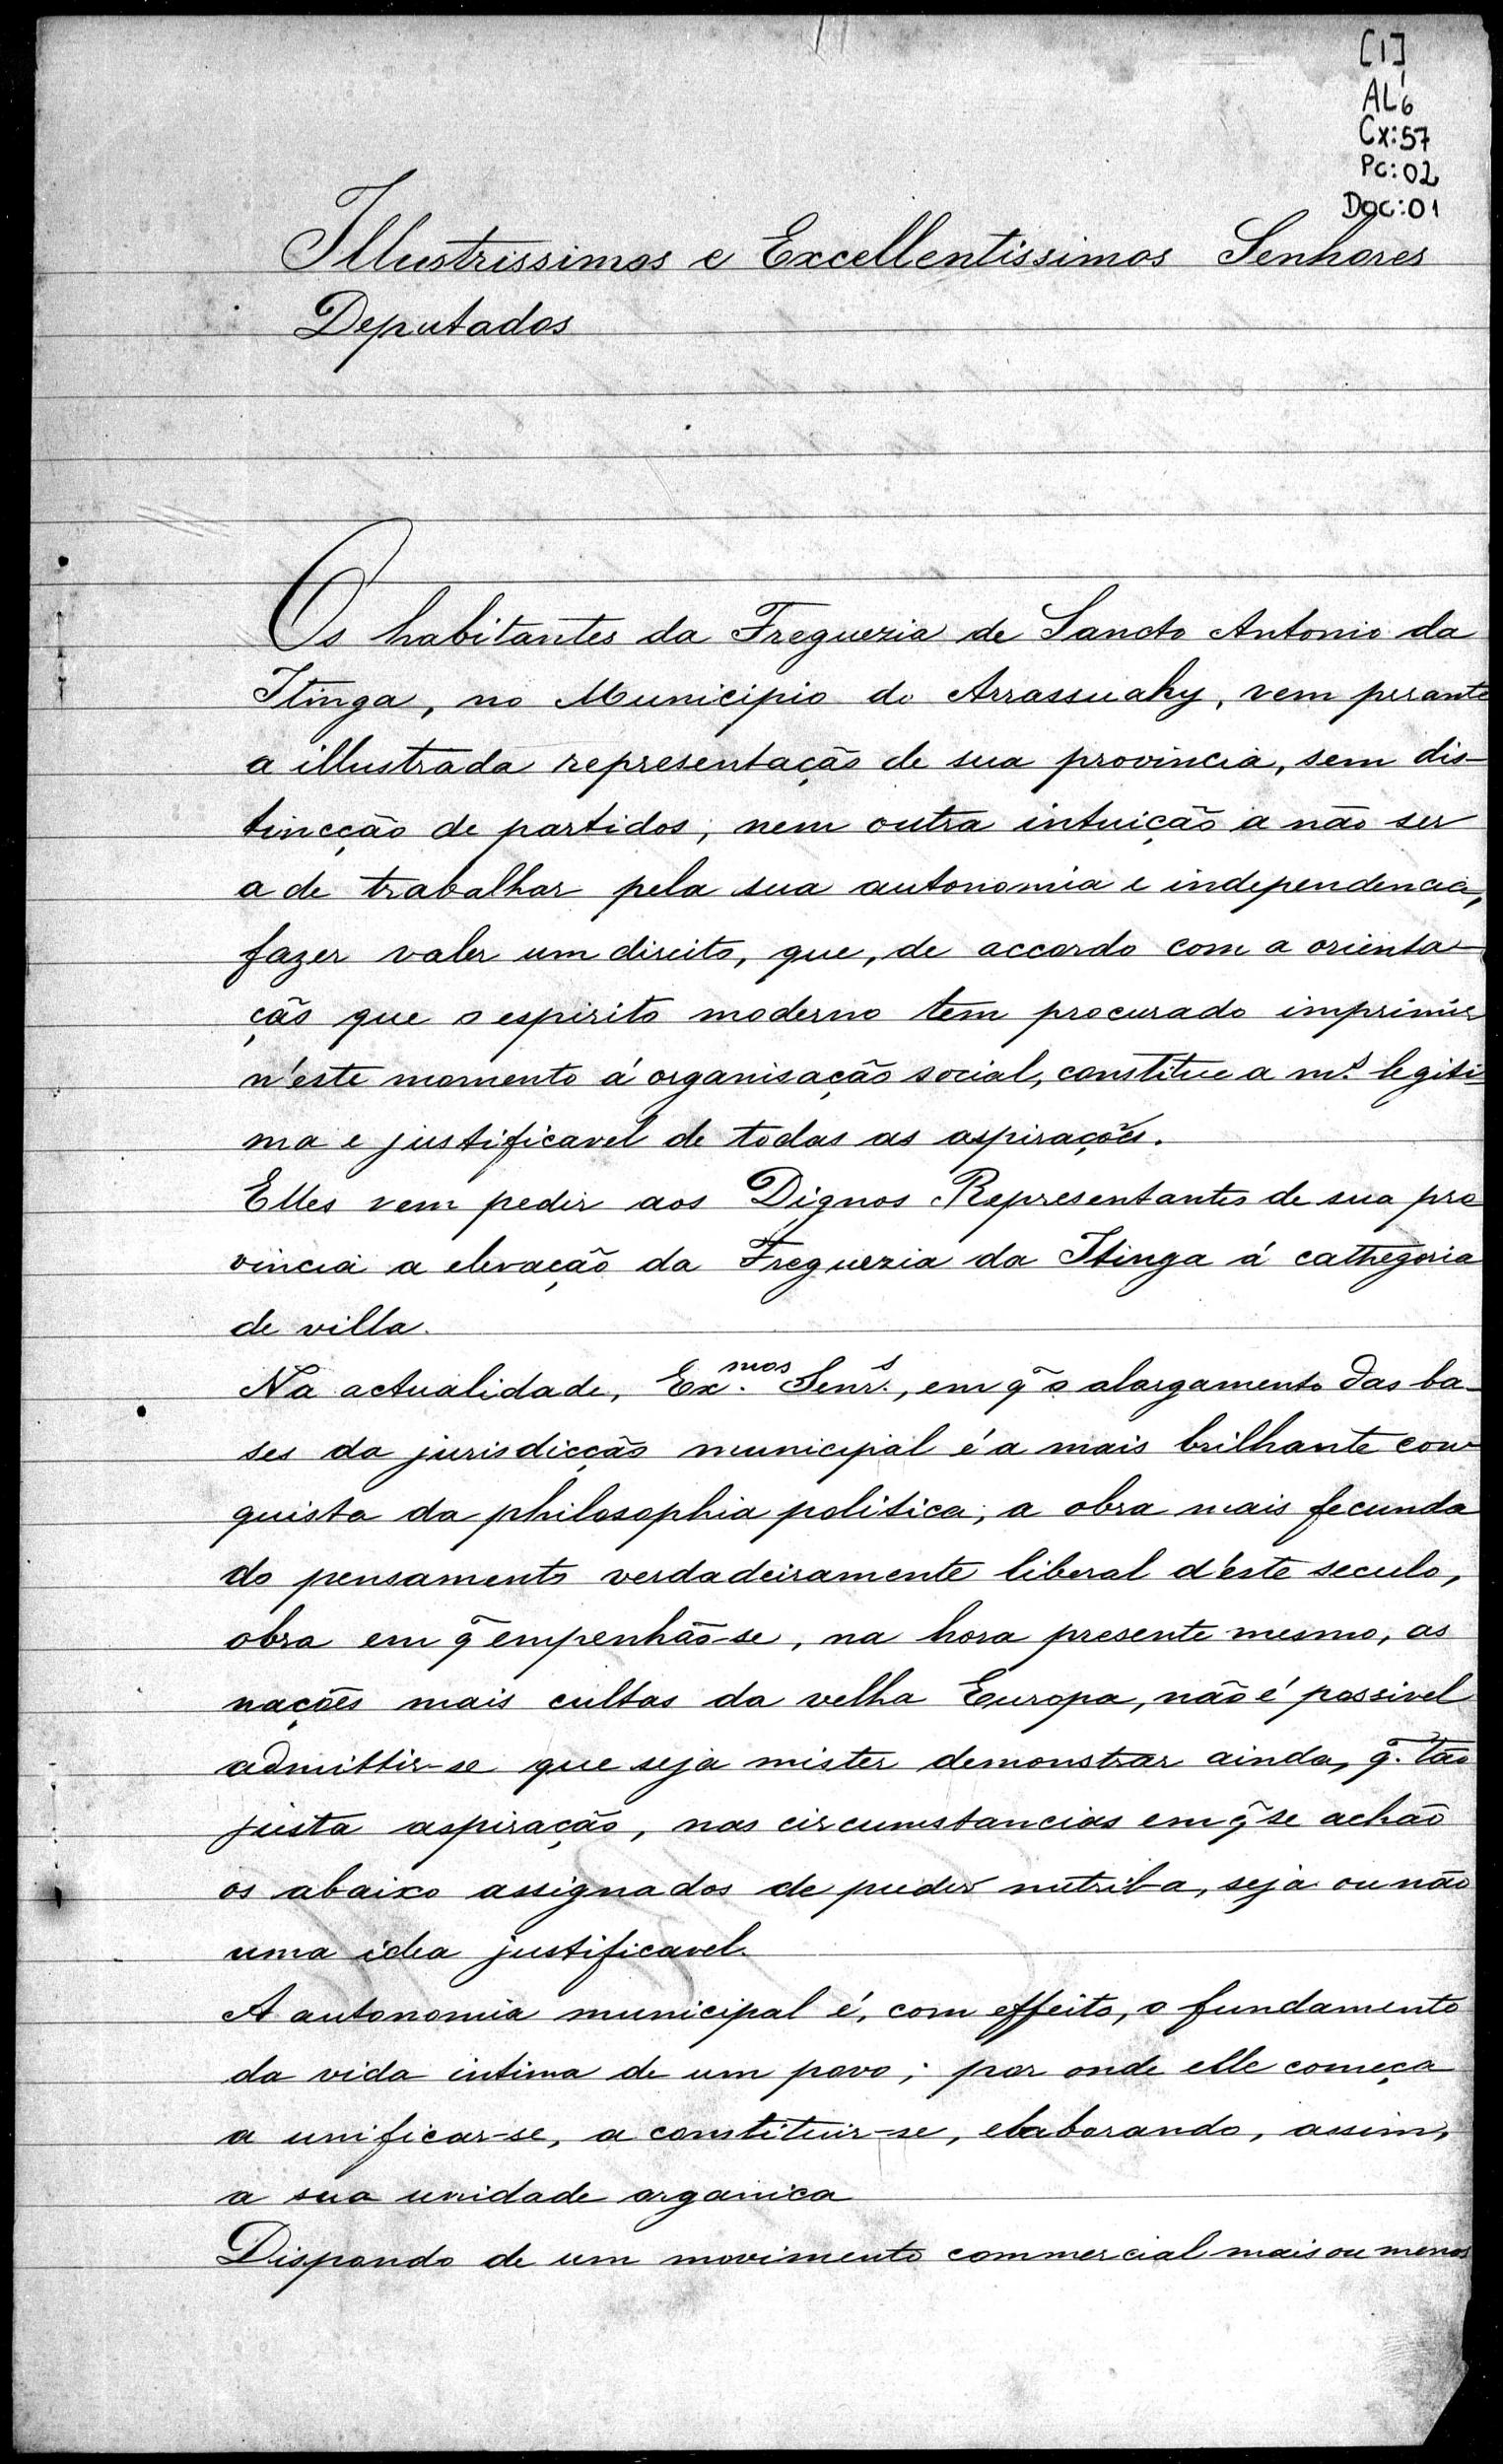 [1]
AL 6
Cx: 57
Pc: 02
Doc: 01
Illustrissimos e Excellentissimos Senhores
Deputados
Os habitantes da Freguezia de Sancto Antonio da
Itinga, no Municipio do Arrassuahy, vem perante
a illustrada representação de sua provincia, sem dis-
tincção de partidos, nem outra intuição a não ser
a de trabalhar pela sua autonomia e independencia,
fazer valer um direito, que, de accordo com a orienta-
ção que o espirito moderno tem procurado imprimir
n'este momento á organisação social, constitue a m.s legiti
ma e justificavel de todas as aspirações.
Elles vem pedir aos Dignos Representantes de sua pro
vincia a elevação da Freguezia da Itinga á cathegoria
de villa.
Na actualidade, Ex.mos Senr.s, em q̃ o alargamento das ba-
ses da jurisdicção municipal é a mais brilhante con-
quista da philosophia politica, a obra mais fecunda
do pensamento verdadeiramente liberal d'este seculo,
obra em q̃ empenhão-se, na hora presente mesmo, as
nações mais cultas da velha Europa, não é possivel
admittir-se que seja mister demonstrar ainda, q̃. tão
justa aspiração, nas circumstancias em q̃ se achão
os abaixo assignados de puder nutril-a, seja ou não
uma idea justificavel.
A autonomia municipal é, com effeito, o fundamento
da vida intima de um povo; por onde elle começa
a unificar-se, a constituir-se, elaborando, assim,
a sua unidade organica
Dispondo de um movimento commercial mais ou menos